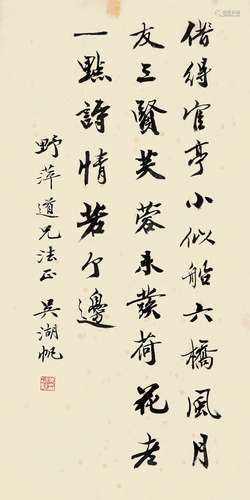 借得官亭小似船六橋風月
友三賢芙蓉未發荷花老
一點詩情若个邊
野萍道兄法正 吳湖帆